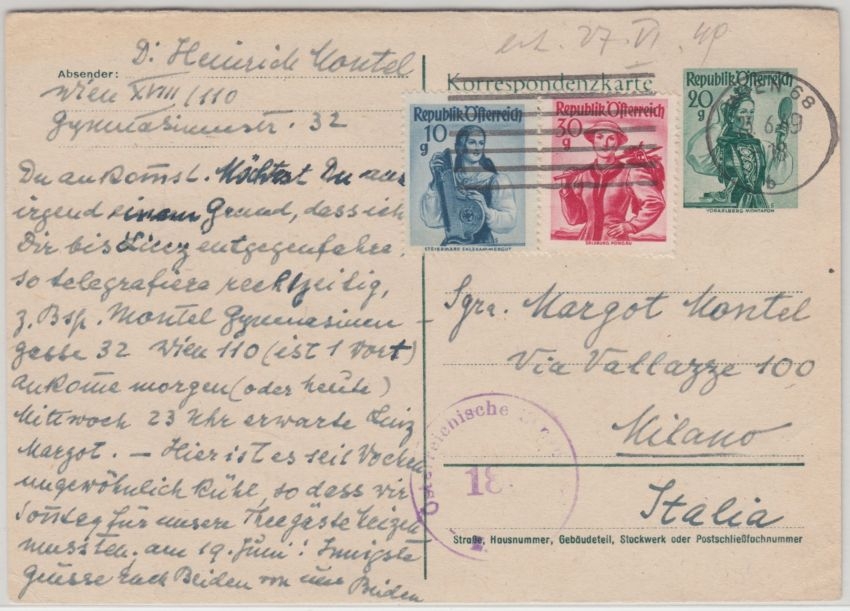 Absender:
Dr Heinrich Montel
Wien XVIII/110
Gymnasiumstr. 32
Du ankomst. Möchtest Du aus
irgend einem Grund, dass ich
Dir bis Linz entgegenfahre,
so telegrafiere rechtzeitig,
z. Bsp. Montel Gymnasium-
gasse 32 Wien 110 (ist 1 Wort)
ankome morgen (oder heute)
Mittwoch 23 Uhr erwarte Linz
Margot. — Hier ist es seit Wochen
ungewöhnlich kühl, so dass wir
Sonntag für unsere Theegäste heizen
mussten. am 19. Juni! Innigste
Grüsse Euch Beiden von uns Beiden
erh. 27. VI. 49
Korrespondenzkarte
Republik Österreich
10 g
STEIERMARK SALZKAMMERGUT
Republik Österreich
30 g
SALZBURG PONGAU
Republik Österreich
20 g
VORARLBERG MONTAFON
WIEN 68
6.49
18
Sgra. Margot Montel
Via Vallazze 100
Milano
Italia
Österreichische
18
Straße, Hausnummer, Gebäudeteil, Stockwerk oder Postschließfachnummer